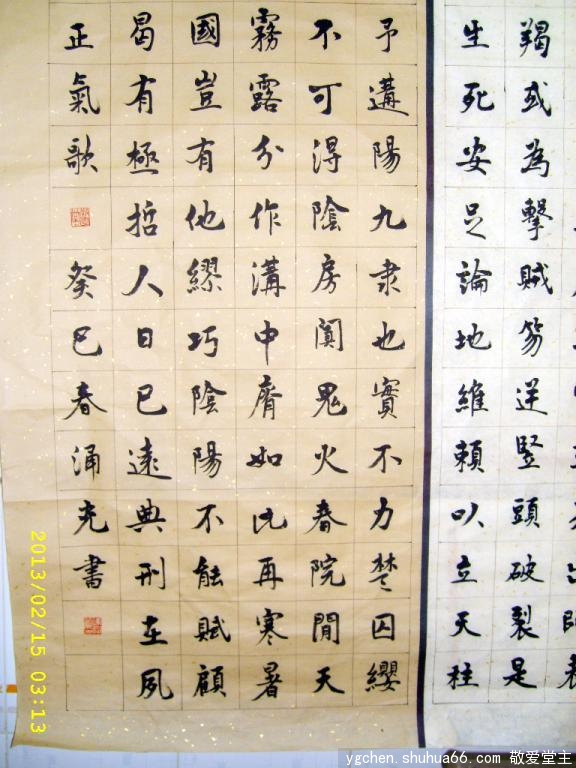 羯或為擊賊笏逆豎頭破裂是
生死安足論地維賴以立天柱
予遘陽九隶也實不力楚囚纓
不可得陰房闃鬼火春院閒天
霧露分作溝中瘠如此再寒暑
國豈有他繆巧陰陽不能賊顧
曷有極哲人日已遠典刑在夙
正氣歌 癸巳春涌充書
2013/02/15 03:13
ygchen.shuhua66.com 敬爱堂主